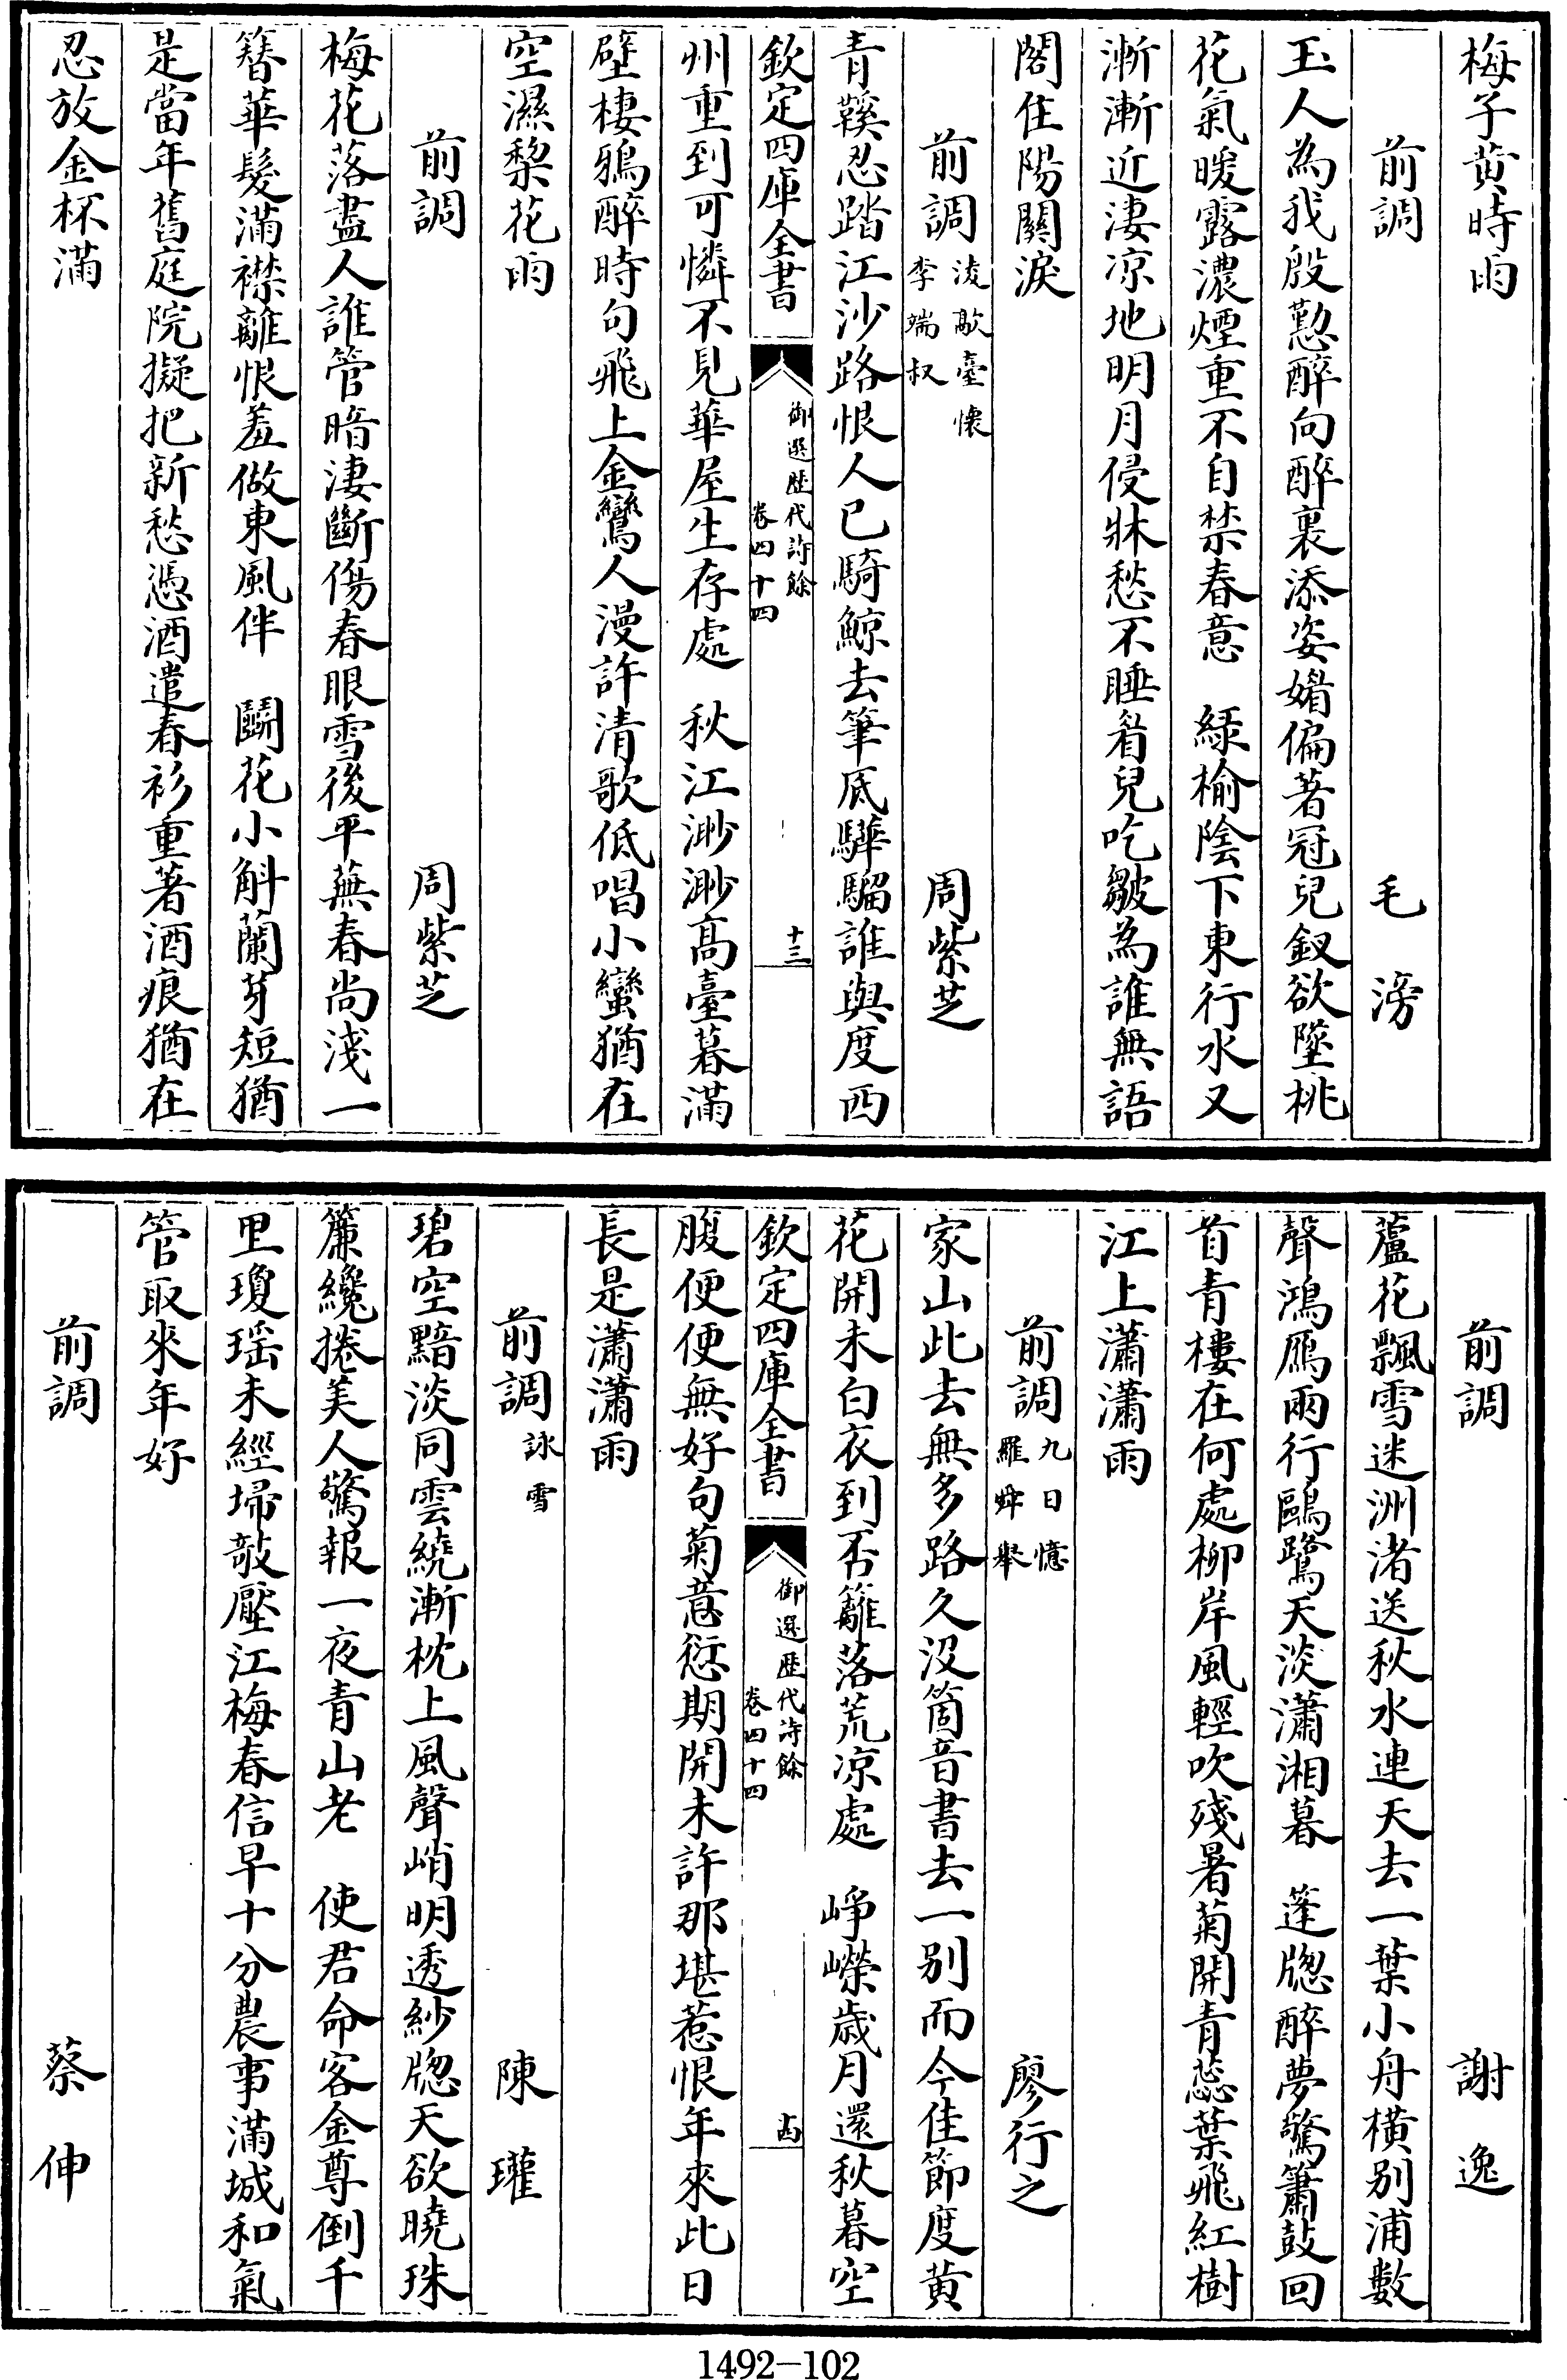 梅子黄時雨
前調　毛滂
玉人為我殷懃醉向醉裏添姿媚偏著冠兒釵欲墜桃
花氣暖露濃煙重不自禁春意　緑榆陰下東行水又
漸漸近淒凉地明月侵牀愁不睡眉兒吃皺為誰無語
閣住陽關淚
前調凌歊臺懷李端叔　周紫芝
青鞵忍踏江沙路恨人已騎鯨去筆底驊騮誰與度西
欽定四庫全書　御選歴代詩餘卷四十四　十三
州重到可憐不見華屋生存處　秋江渺渺高臺暮滿
壁棲鴉醉時句飛上金鸞人漫許清歌低唱小蠻猶在
空濕棃花雨
前調　周紫芝
梅花落盡人誰管暗淒斷傷春眼雪後平蕪春尚淺一
簪華髮滿襟離恨羞做東風伴　鬭花小斛蘭芽短猶
是當年舊庭院擬把新愁憑酒遣春衫重著酒痕猶在
忍放金杯滿
前調　謝逸
蘆花飄雪迷洲渚送秋水連天去一葉小舟橫别浦數
聲鴻鴈兩行鷗鷺天淡瀟湘暮　蓬牕醉夢驚簫鼓回
首青樓在何處柳岸風輕吹殘暑菊開青蕊葉飛紅樹
江上瀟瀟雨
前調九日憶羅舜舉　廖行之
家山此去無多路久沒箇音書去一别而今佳節度黄
花開未白衣到否籬落荒凉處　崢嶸歲月還秋暮空
欽定四庫全書　御選歴代詩餘卷四十四　十四
腹便便無好句菊意愆期開未許那堪惹恨年來此日
長是瀟瀟雨
前調詠雪　陳瓘
碧空黯淡同雲繞漸枕上風聲峭明透紗牕天欲曉珠
簾纔捲美人驚報一夜青山老　使君命客金尊倒千
里瓊瑶未經埽敧壓江梅春信早十分農事滿城和氣
管取來年好
前調　蔡伸
1492—102